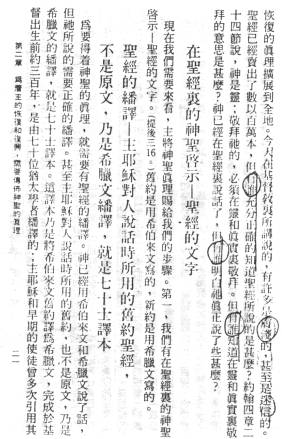 恢復的真理擴展到全地。今天在基督教裏所譯說的,有許多是幼稚的,甚至是迷信的。
聖經已經賣出了數以百萬本,但誰充分正確的知道聖經所說的是甚麼?約翰四章二
十四節說,神是靈;敬拜祂的,必須在靈和真實裏敬拜。但誰知道在靈和真實裏敬
拜的意思是甚麼?神已經在聖經裏說話了,誰明白祂真正說了些甚麼?
在聖經裏的神聖啓示—聖經的文字
現在我們需要來看,主將神聖真理賜給我們的步驟。第一,我們有在聖經裏的神聖
啓示—聖經的文字。(提後三16。)舊約是用希伯來文寫的,新約是用希臘文寫的。
聖經的繙譯—主耶穌對人說話時所用的舊約聖經,
不是原文,乃是希臘文繙譯,就是七十士譯本
爲要得着神聖的真理,就需要有聖經的繙譯。神已經用希伯來文和希臘文說了話,
但祂所說的需要正確的繙譯。甚至主耶穌對人說話時所用的舊約,也不是原文,乃是
希臘文的繙譯,就是七十士譯本。這譯本乃是將希伯來文舊約譯爲希臘文,完成於基
督出生前約三百年,是由七十位猶太學者繙譯的;主耶穌和早期的使徒曾多次引用其
第二章 爲着主的恢復和復興,需要傳佈神聖的真理
二一